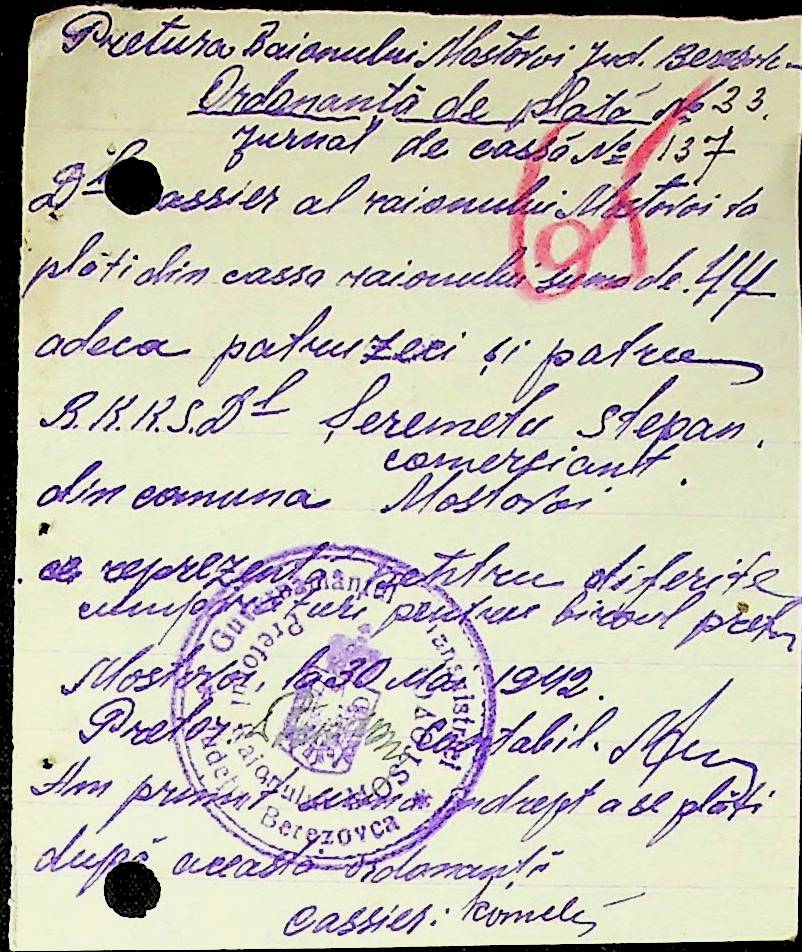 Pretura Raionului Mostovoi Jud. Berezov-
Ordonanță de plată № 33.
Jurnal de cassă № 137
Dl cassier al raionului Mostovoi va
plăti din cassa raionului suma de 44
adeca patruzeci și patru
R.K.K.S. Dl Șeremeta Stepan.
comerciant.
din comuna Mostovoi
ce reprezentă pentru diferite
cumpărături pentru biroul pretu
Mostovoi, la 30 Mai 1942.
Pretor Contabil.
Am primit suma indrept a se plăti
după aceasta ordonanță
Cassier:
Guvernământul Transnistriei
Pretorul raionului Mostovoi
Județul Berezovca